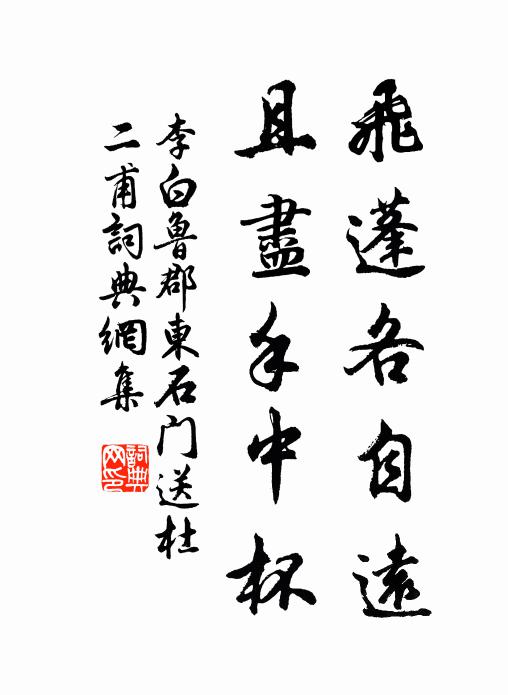 飛蓬各自遠
且盡手中杯
李白魯郡東石门送杜
二甫詞典網集
詞典
网印